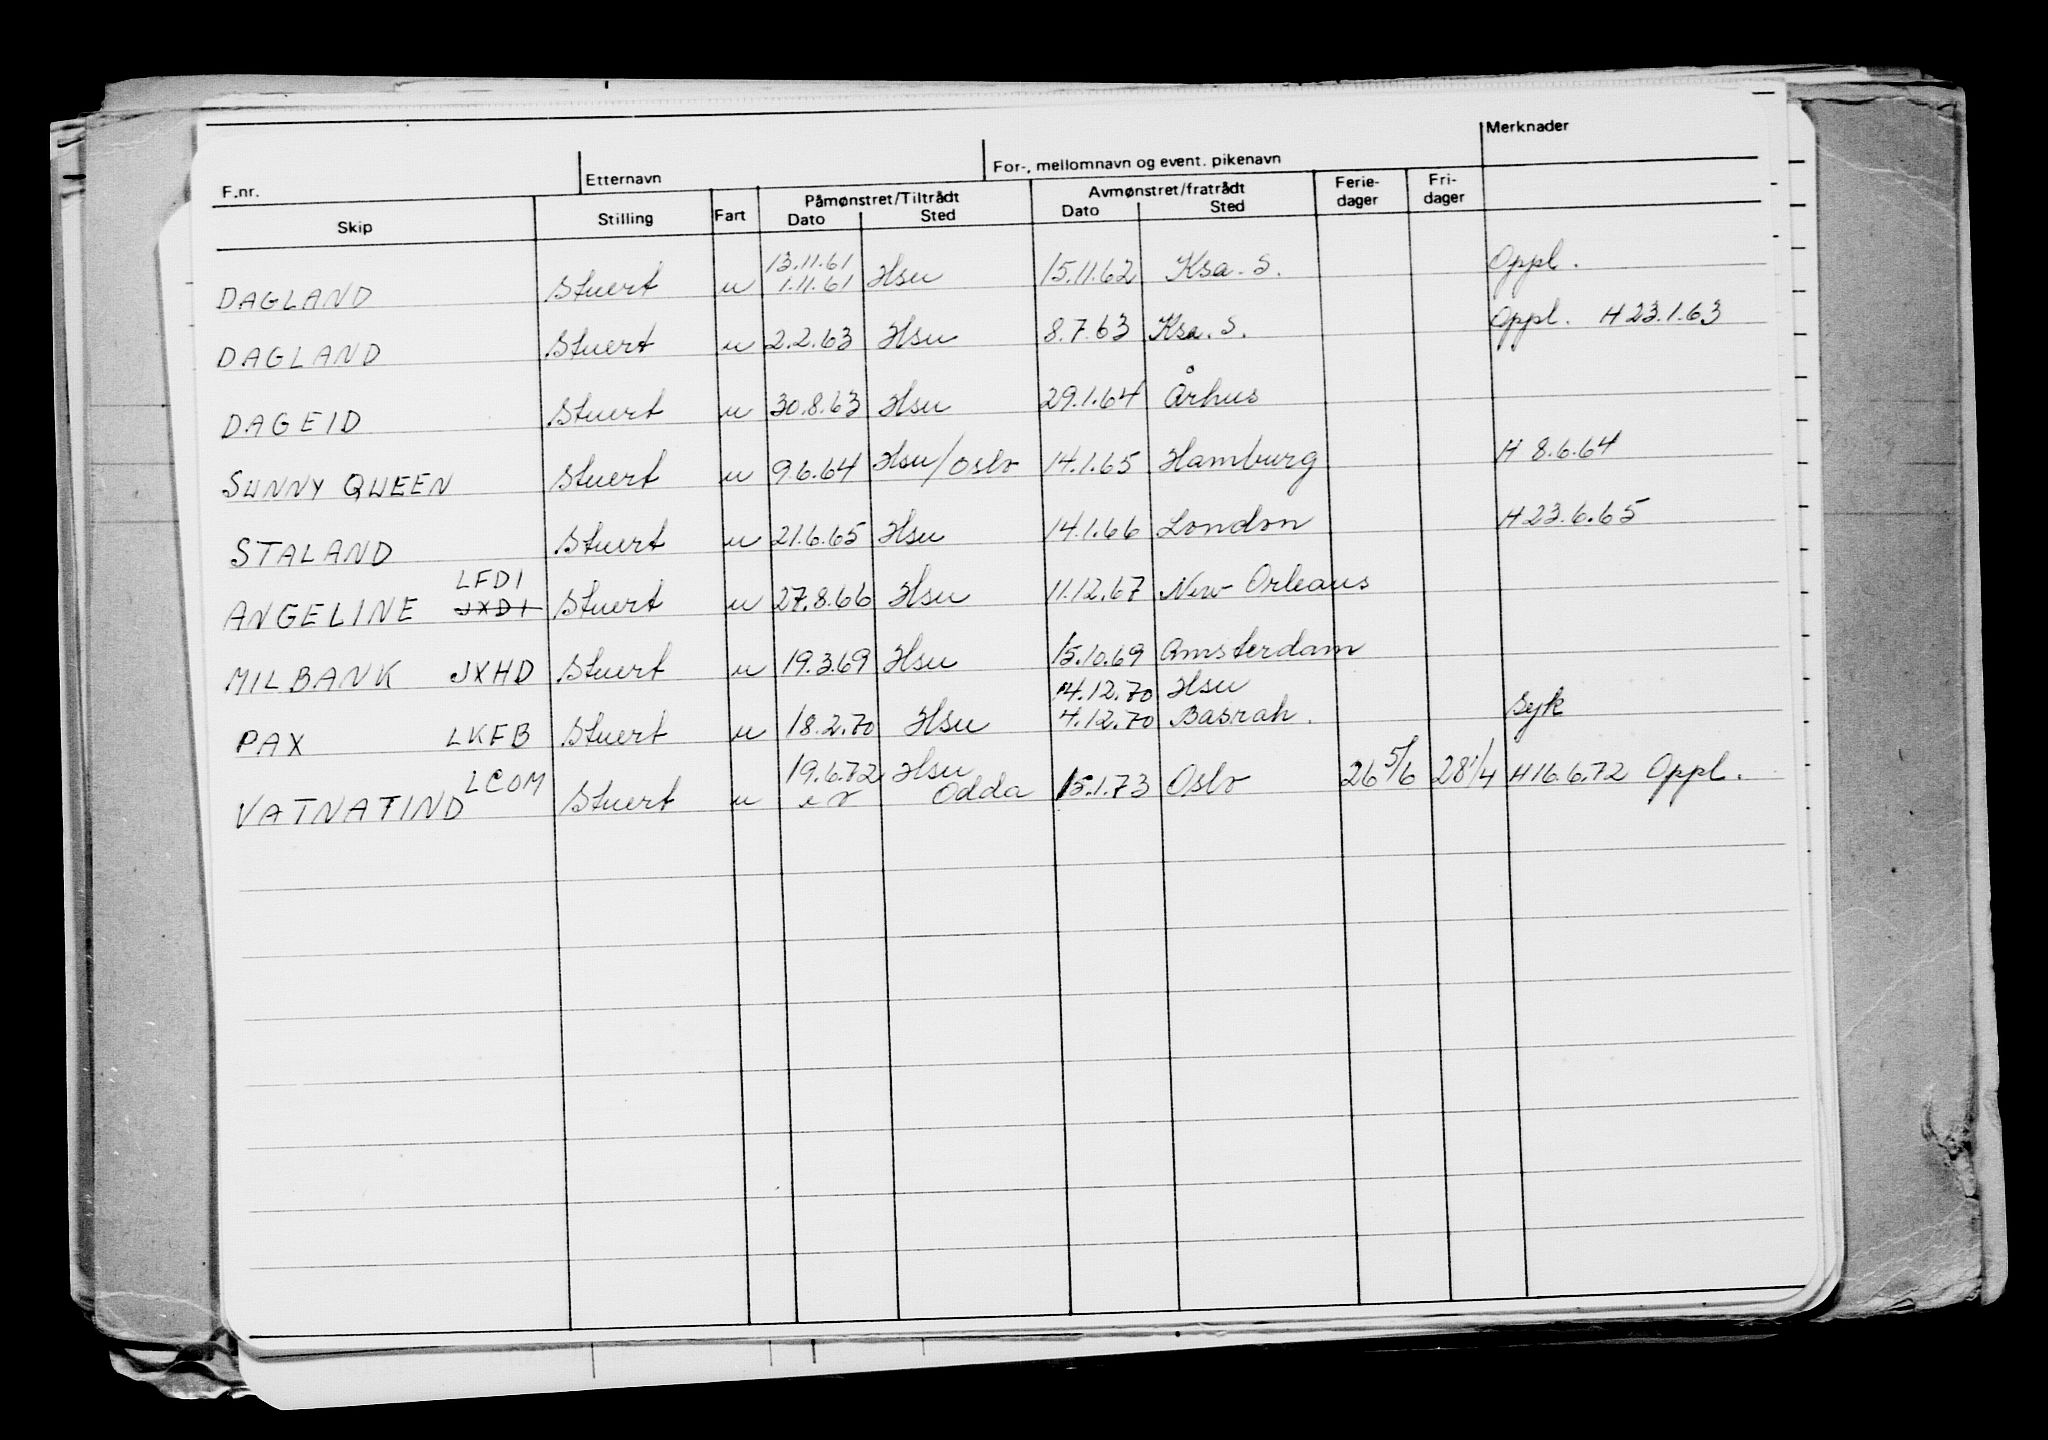 F.nr. Etternavn For-, mellomnavn og event. pikenavn Merknader
Skip Stilling Fart Påmønstret/Tiltrådt Dato Sted Avmønstret/fratrådt Dato Sted Ferie-dager Fri-dager
13.11.61
DAGLAND Stuert u 1.11.61 Hsu 15.11.62 Ksa. S. Oppl.
DAGLAND Stuert u 2.2.63 Hsu 8.7.63 Ksa. S. Oppl. H 23.1.63
DAGEID Stuert u 30.8.63 Hsu 29.1.64 Århus
SUNNY QUEEN Stuert u 9.6.64 Hsu/Oslo 14.1.65 Hamburg H 8.6.64
STALAND Stuert u 21.6.65 Hsu 14.1.66 London H 23.6.65
LFDI
ANGELINE JXDI Stuert u 27.8.66 Hsu 11.12.67 New Orleans
MILBANK JXHD Stuert u 19.3.69 Hsu 15.10.69 Amsterdam
4.12.70 Hsu
PAX LKFB Stuert u 18.2.70 Hsu 4.12.70 Basrah. Syk
LCOM 19.6.72 Hsu
VATNATIND Stuert u Odda 15.1.73 Oslo 26 5/6 28 1/4 H 16.6.72 Oppl.